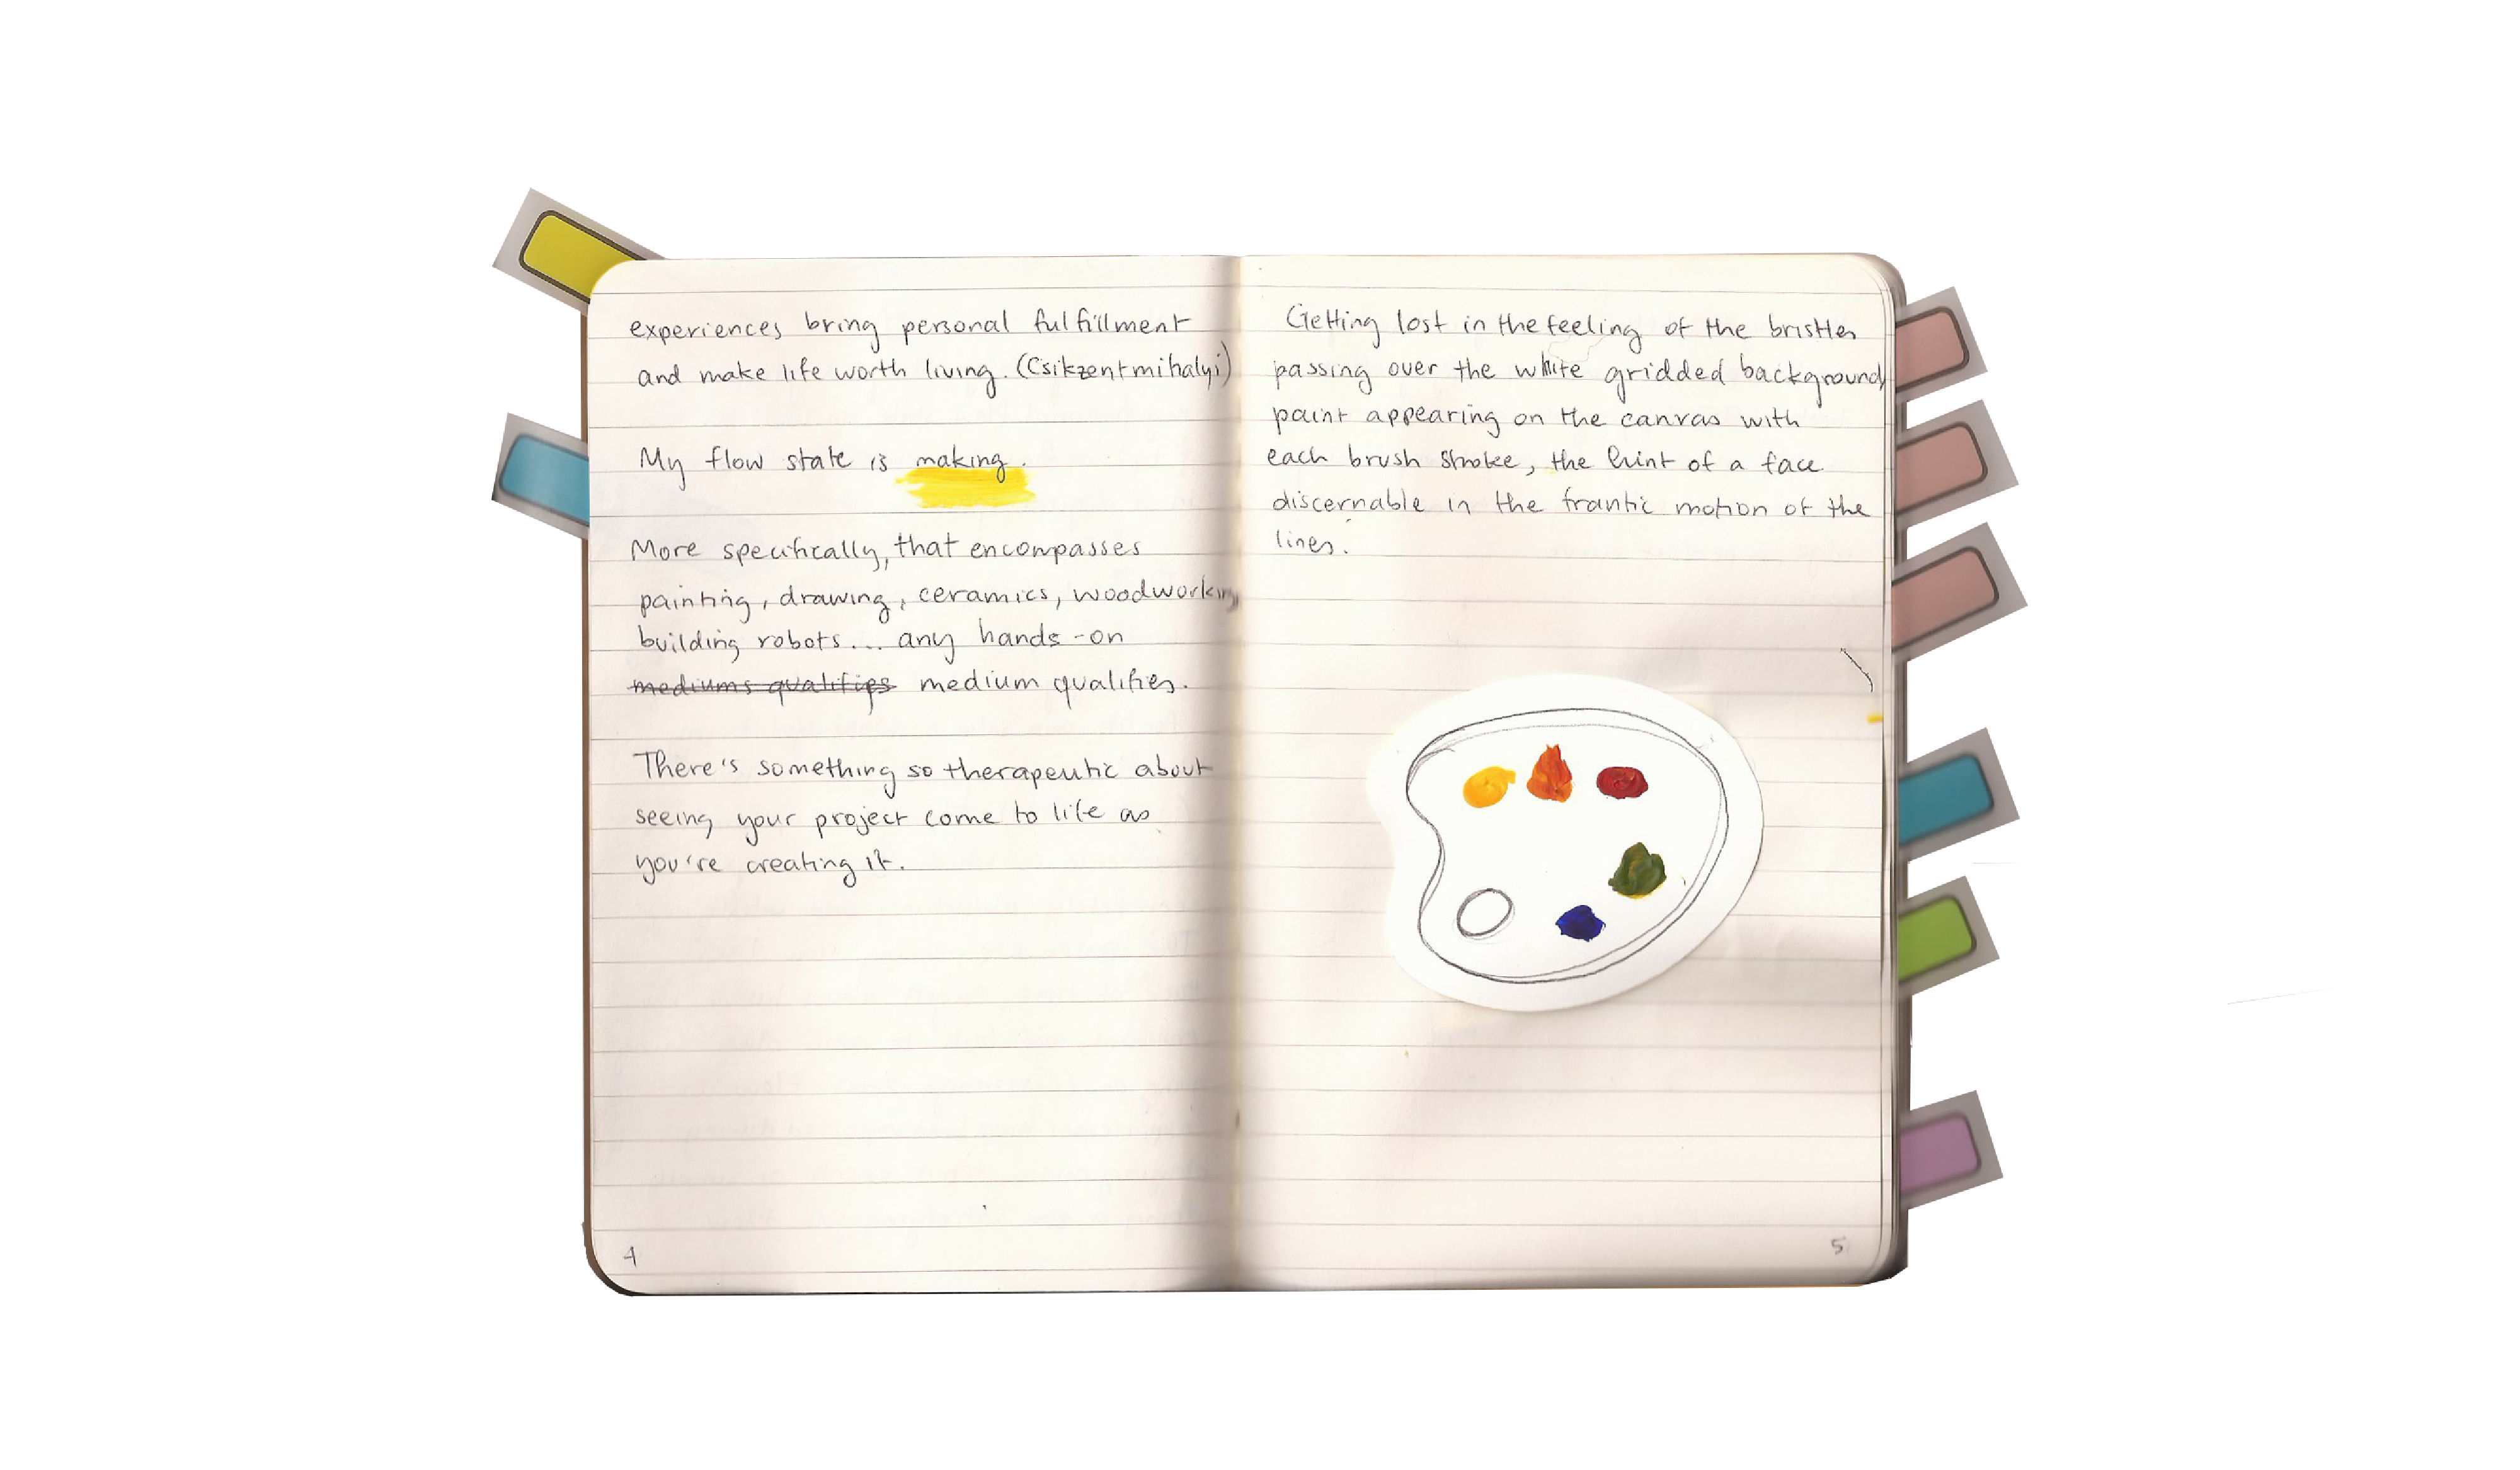 experiences bring personal fulfillment
and make life worth living. (Csikzentmihalyi)
My flow state is making.
More specifically, that encompasses
painting, drawing, ceramics, woodworking,
building robots... any hands-on
mediums qualifies medium qualifies.
There's something so therapeutic about
seeing your project come to life as
you're creating it.
4
Getting lost in the feeling of the bristles
passing over the white gridded background
paint appearing on the canvas with
each brush stroke, the hint of a face
discernable in the frantic motion of the
lines.
5